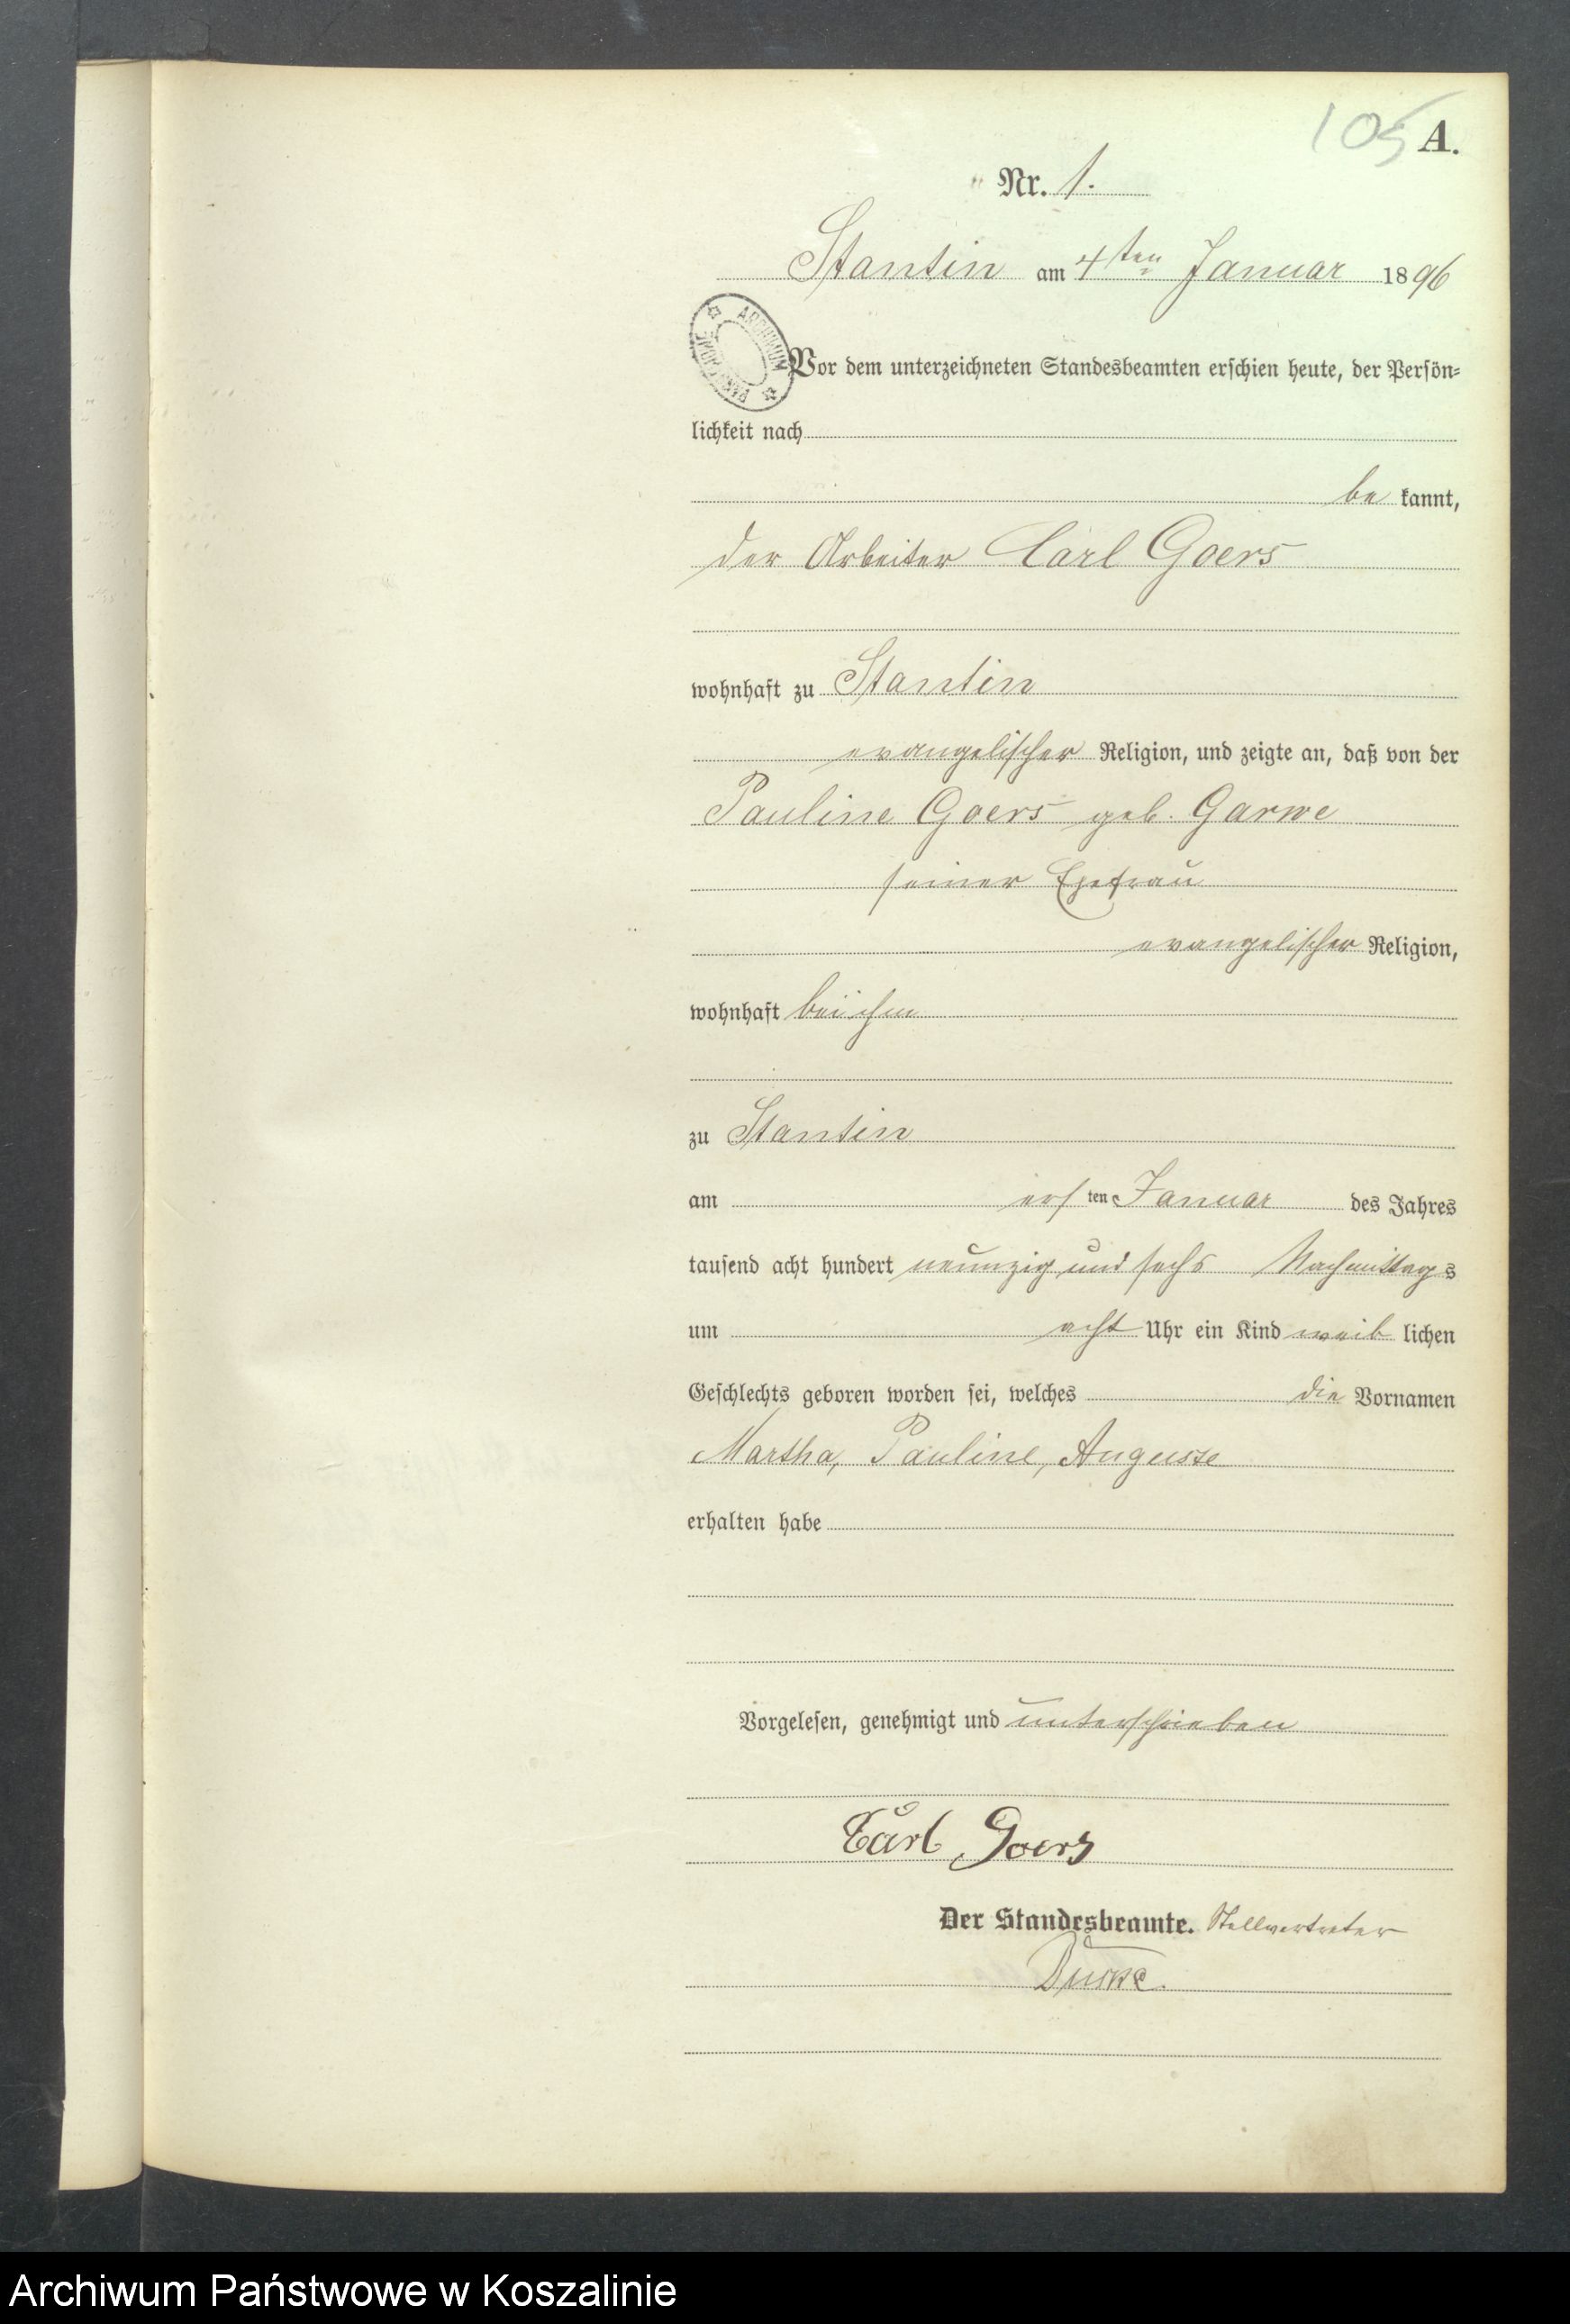 105 A.
Nr. 1.
Stantin am 4ten Januar 1896
Vor dem unterzeichneten Standesbeamten erschien heute, der Persön-
lichkeit nach
be kannt,
der Arbeiter Carl Goers
wohnhaft zu Stantin
evangelischer Religion, und zeigte an, daß von der
Pauline Goers geb. Garwe
seiner Ehefrau
evangelischer Religion,
wohnhaft bei ihm
zu Stantin
am ersten Januar des Jahres
tausend acht hundert neunzig und sechs Nachmittags
um acht Uhr ein Kind weiblichen
Geschlechts geboren worden sei, welches die Vornamen
Martha, Pauline, Auguste
erhalten habe
Vorgelesen, genehmigt und unterschrieben
Carl Goers
Der Standesbeamte. Stellvertreter
Archiwum Państwowe w Koszalinie